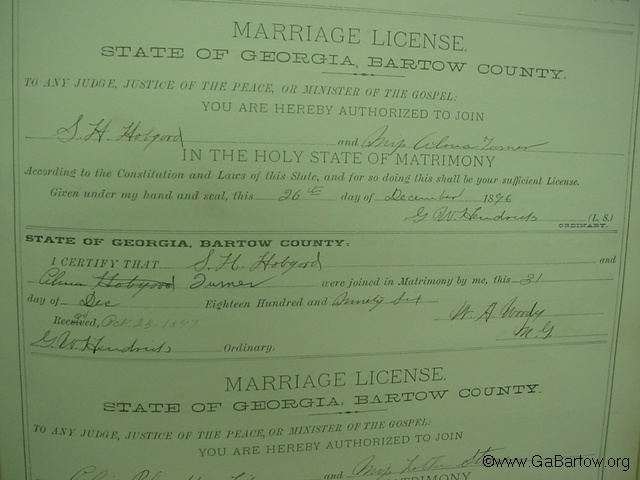 MARRIAGE LICENSE.
STATE OF GEORGIA, BARTOW COUNTY.
TO ANY JUDGE, JUSTICE OF THE PEACE, OR MINISTER OF THE GOSPEL:
YOU ARE HEREBY AUTHORIZED TO JOIN
S. H. Hobgood and Miss Alma Turner
IN THE HOLY STATE OF MATRIMONY
According to the Constitution and Laws of this State, and for so doing this shall be your sufficient License.
Given under my hand and seal, this 26th day of December 1896
G W Hendricks (L. S.)
ORDINARY.
STATE OF GEORGIA, BARTOW COUNTY:
I CERTIFY THAT S. H. Hobgood and
Alma Hobgood Turner were joined in Matrimony by me, this 31
day of Dec Eighteen Hundred and Ninety Six
W. A. Woody
M. G
Oct 23 1897
G. W Hendricks Ordinary.
MARRIAGE LICENSE.
STATE OF GEORGIA, BARTOW COUNTY.
TO ANY JUDGE, JUSTICE OF THE PEACE, OR MINISTER OF THE GOSPEL:
YOU ARE HEREBY AUTHORIZED TO JOIN
and Miss
MATRIMONY
©www.GaBartow.org